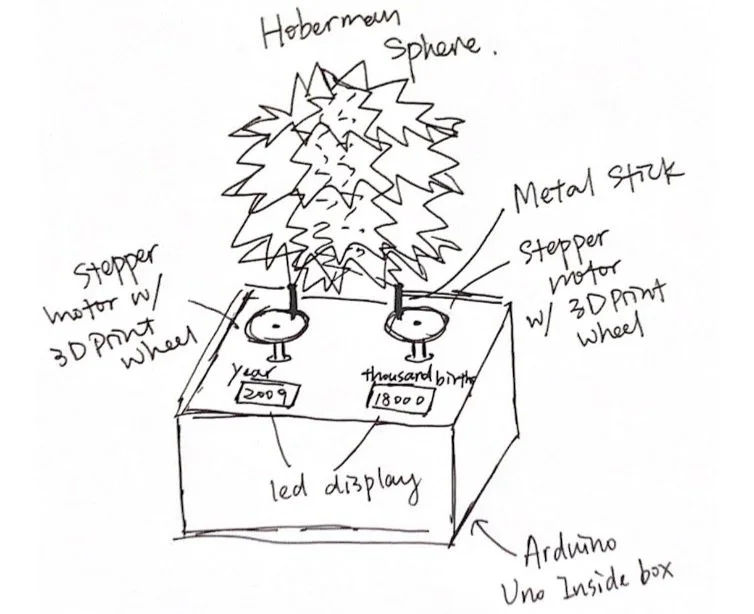 Hoberman
Sphere.
Metal Stick
Stepper
motor w/
3D Print
wheel
Stepper
motor
w/ 3D Print
wheel
year
2009
thousand births
18000
led display
Arduino
Uno Inside box